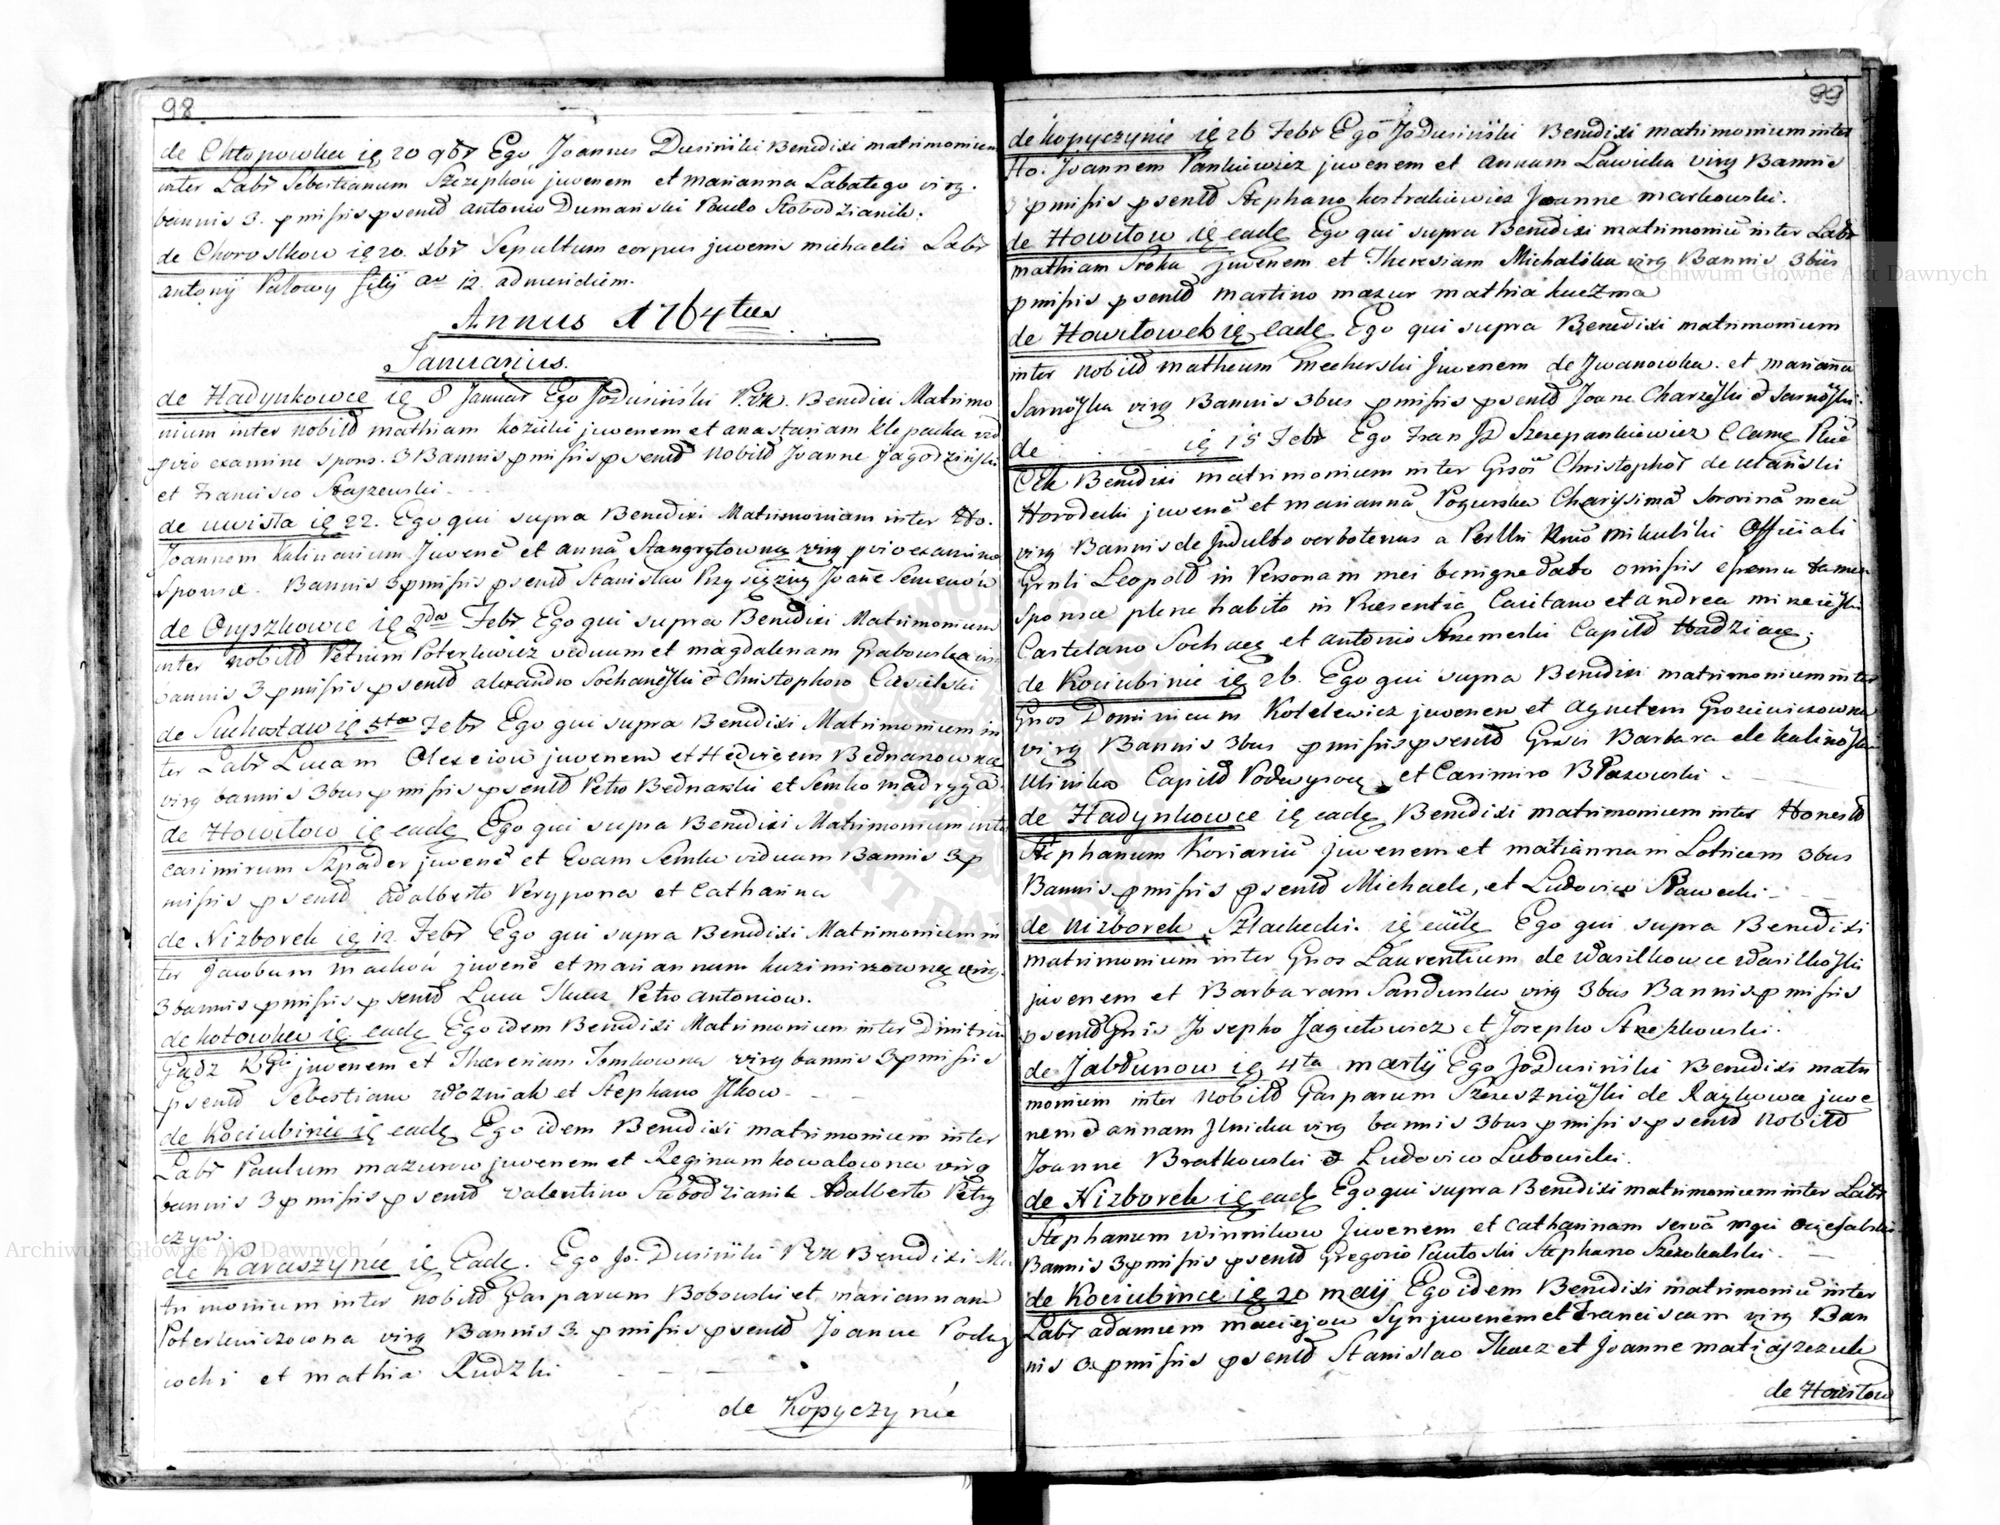 98
de Chłopowka ię 20 9br Ego Joannes Dusiński Benedixi matrimonium
inter Labr Sebestianum Szczepkow juvenem et marianna Labatego virg.
bannis 3. pmissis psentd antonio Dumański Paulo Słobodzianik.
de Chorostkow ię 20. xbr Sepultum corpus juvenis michaelis Labr
antonÿ Patowy filÿ an 12. ad meridiem.
Annus 1764tus
Januarius.
de Hadynkowce ię 8 Januar Ego Jo Dusiński Benedixi Matrimo
nium inter nobild mathiam kozicki juvenem et anastasiam klepacka
pvio examine spons. 3 Bannis pmissis psentd nobild Joanne Jagodziński
et Francisco Staszewski.
de uwisła ię 22. Ego qui supra Benedixi Matrimoniam inter Ho.
Joannem Kalinarium Juvenē et annā Stangrytowną virg pvio examine
sponsæ. Bannis 3 pmissis psentd Stanislao Przysiężny Joane Semenow
de Oryszkowce ię 2da Febr Ego qui supra Benedixi Matrimonium
inter nobild Petrum Poterlewicz viduum et magdalenam Grabowska
bannis 3 pmissis psentd alexandro Sochański & Christophoro Cesielski
de Suchostaw ię 5ta Febr Ego qui supra Benedixi Matrimonium in
ter Labr Lucam Olexeiow juvenem et Hedvigem Bednarowna
virg bannis 3bus pmissis psentd Petro Bednarski et Semko madryga.
de Howiłow ię eadę Ego qui supra Benedixi Matrimonium inte
casimirum Szpader juvenē et Evam Semkw viduam Bannis 3 p
missis psentd adalberto Perypona et Catharina
de Nizborek ię 12. Febr Ego qui supra Benedixi Matrimonium in
ter Jacobum machow juvenē et mariannam kazimirowną virg.
3 bannis pmissis psentd Luca Tkacz Petro antoniow.
de kotowka ię eadę Ego idem Benedixi Matrimonium inter Dimitrium
juvenem et Thareriam Tomkowna virg bannis 3 pmissis
psentd Sebestiano woźniak et Stephano Ilkow.
de kociubince ię eadę Ego idem Benedixi matrimonium inter
Labr Paulum mazurow juvenem et Reginam kowalowna virg
bannis 3 pmissis psentd valentino Słobodzianik Adalberto Petry
czyn.
de Karaszynce ię Eadę. Ego Jo. Dusiński Benedixi Ma
trimonium inter nobild Gasparum Bobowski et mariannam
Poterlewiczowna virg Bannis 3. pmissis psentd Joanne Podwy
socki et mathia Rudzki
de Kopyczynce
99
de kopyczynce ię 26 Febr Ego Jo Dusiński Benedixi matrimonium inter
Ho. Joannem Pankiewicz juvenem et annam Lawicka virg Bannis
3 pmissis psentd Stephano kostrakiewicz Joanne markowski.
de Howiłow ię eadę Ego qui supra Benedixi matrimoniū inter Labr
mathiam Sroka juvenem et Theresiam Michalska virg Bannis 3bus
pmissis psentd martino mazur mathia kuczma
de Howiłowek ię eadę Ego qui supra Benedixi matrimonium
inter nobild matheum mecherski Juvenem de Jwanowka. et marianna
Sarnoska virg Bannis 3bus pmissis psentd Joane Charzyski & Sarnoski.
de ię 15 Febr Ego Szczepankiewicz
Benedixi matrimonium inter Christophor de utański
Horodecki juvenē et mariannā Pogurska Charissimā Sororinā meā
virg Bannis de Jndulto verbotenus a Perllri Rnd mikulski Officiali
Grnli Leopold in Personam mei benigne dato omissis tamen
sponsæ plene habito in Præsentia Caietano et andrea
Castelano Sochacz et antonio Strzemeski Capitd Hadziacz.
de Kociubince ię 26. Ego qui supra Benedixi matrimonium inter
Gnos Dominicum Kotelewicz juvenem et agnetem
virg Bannis 3bus pmissis psentd Gnosis Barbara de kalinoski
Capitd Podwysocz et Casimiro Brzozowski
de Hadynkowce ię eadę Benedixi matrimonium inter Honestd
Stephanum Koriariū juvenem et mariannam Lotricem 3bus
Bannis pmissis psentd Michaele, et Ludovico Sławecki
de Nizborek Szlachecki. ię eadę Ego qui supra Benedixi
matrimonium inter Gnos Laurentium de Wasilkowce Wasilkoski
juvenem et Barbaram Sandurska virg 3bus Bannis pmissis
psentd Gnis Josepho Jagiełowicz et Josepho Strzeszkowski.
de Jabłunow ię 4ta martÿ Ego Jo Dusiński Benedixi matri
monium inter nobild Gasparum de Raykowce juve
nem & annam Jlnicka virg bannis 3bus pmissis psentd nobild
Joanne Bratkowski & Ludovico Lubowicki.
de Nizborek ię eadę Ego qui supra Benedixi matrimonium inter Labr
Stephanum winnikow Juvenem et Catharinam servā
Bannis 3 pmissis psentd Gregorio Pawłoski Stephano
de Kociubince ię 20 maÿ Ego idem Benedixi matrimoniū inter
Labr adamum maciejow Syn juvenem et Franciscam virg Ban
nis 3 pmissis psentd Stanislao Tkacz et Joanne matiaszczuk
de Howiłow
Archiwum Główne Akt Dawnych
Archiwum Główne Akt Dawnych